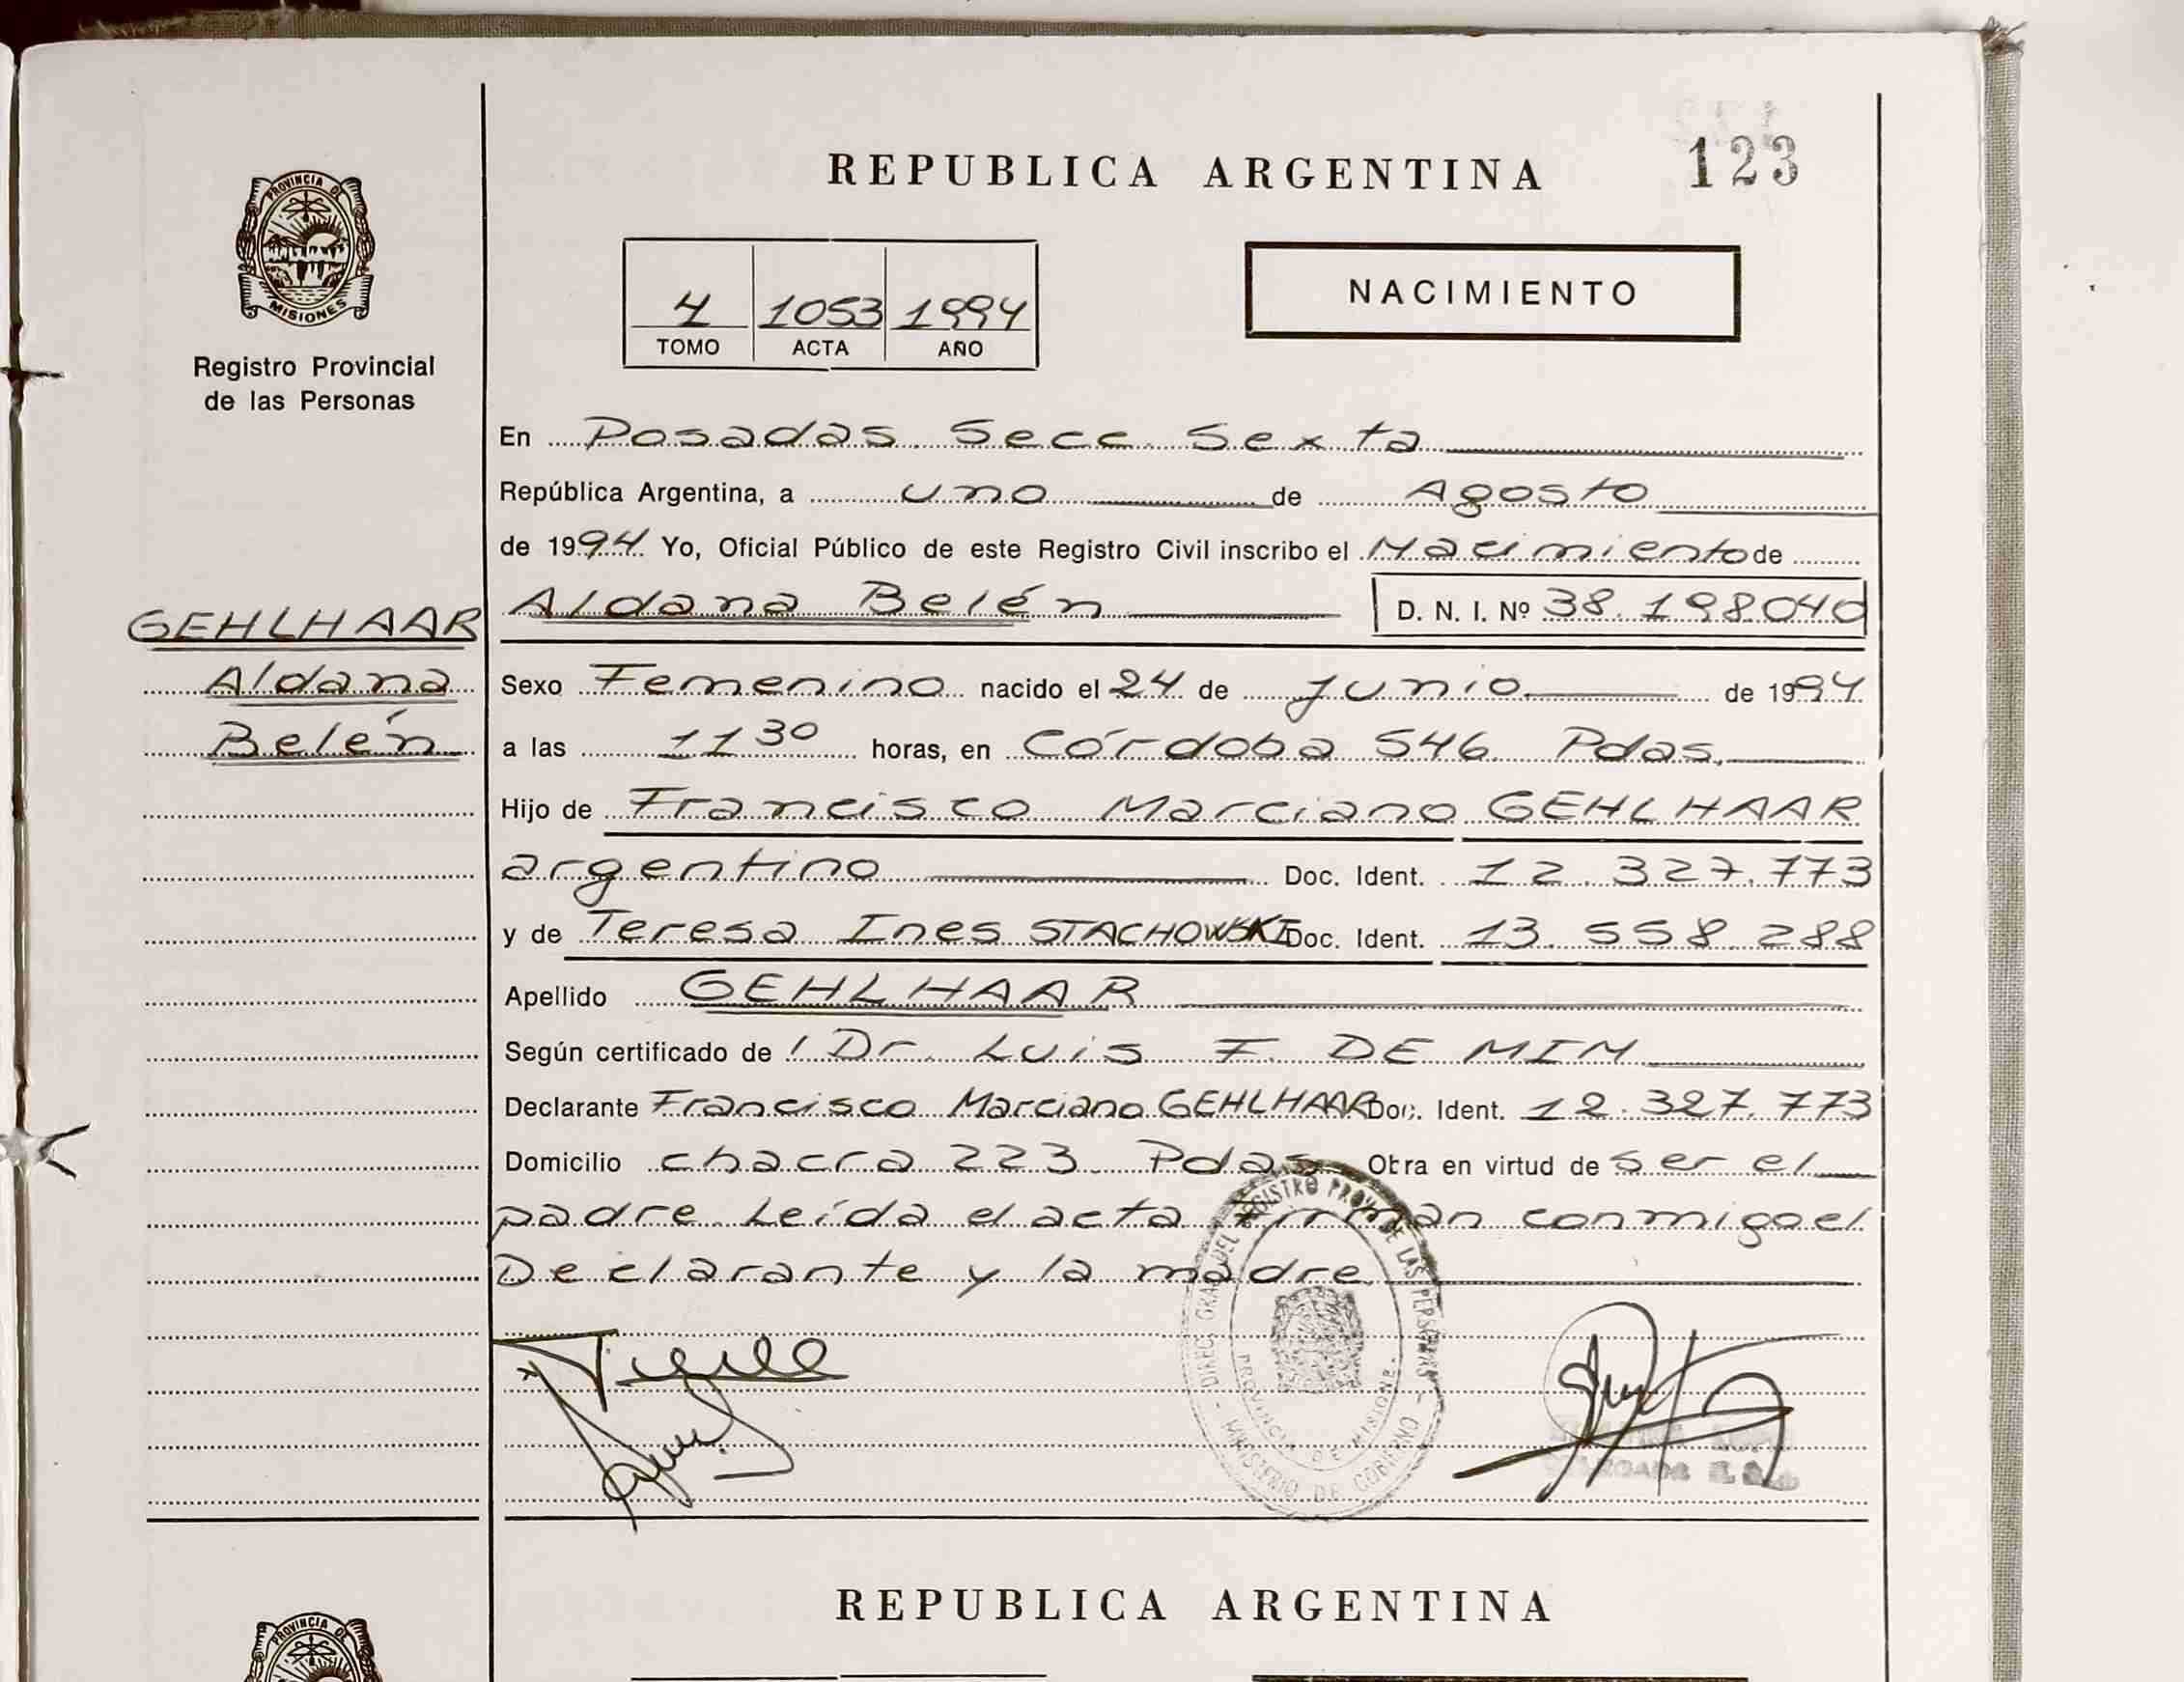 REPUBLICA ARGENTINA
123
PROVINCIA DE
MISIONES
Registro Provincial
de las Personas
4 1053 1994
TOMO ACTA AÑO
NACIMIENTO
En Posadas. Secc. Sexta
República Argentina, a uno de Agosto
de 1994 Yo, Oficial Público de este Registro Civil inscribo el Nacimiento de
Aldana Belén D. N. I. Nº 38.198.040
GEHLHAAR
Aldana
Belén
Sexo Femenino nacido el 24 de Junio de 1994
a las 11 30 horas, en Córdoba 546. Pdas.
Hijo de Francisco Marciano GEHLHAAR
argentino Doc. Ident. 12.327.773
y de Teresa Ines STACHOWSKI Doc. Ident. 13.558.288
Apellido GEHLHAAR
Según certificado de Dr. Luis F. DE MIM
Declarante Francisco Marciano GEHLHAAR Doc. Ident. 12.327.773
Domicilio chacra 223. Pdas Obra en virtud de ser el
padre. Leída el acta firman conmigo el
Declarante y la madre
DIREC. GRAL. DEL REGISTRO PROV. DE LAS PERSONAS
PROVINCIA DE MISIONES
MINISTERIO DE GOBIERNO
REPUBLICA ARGENTINA
PROVINCIA DE